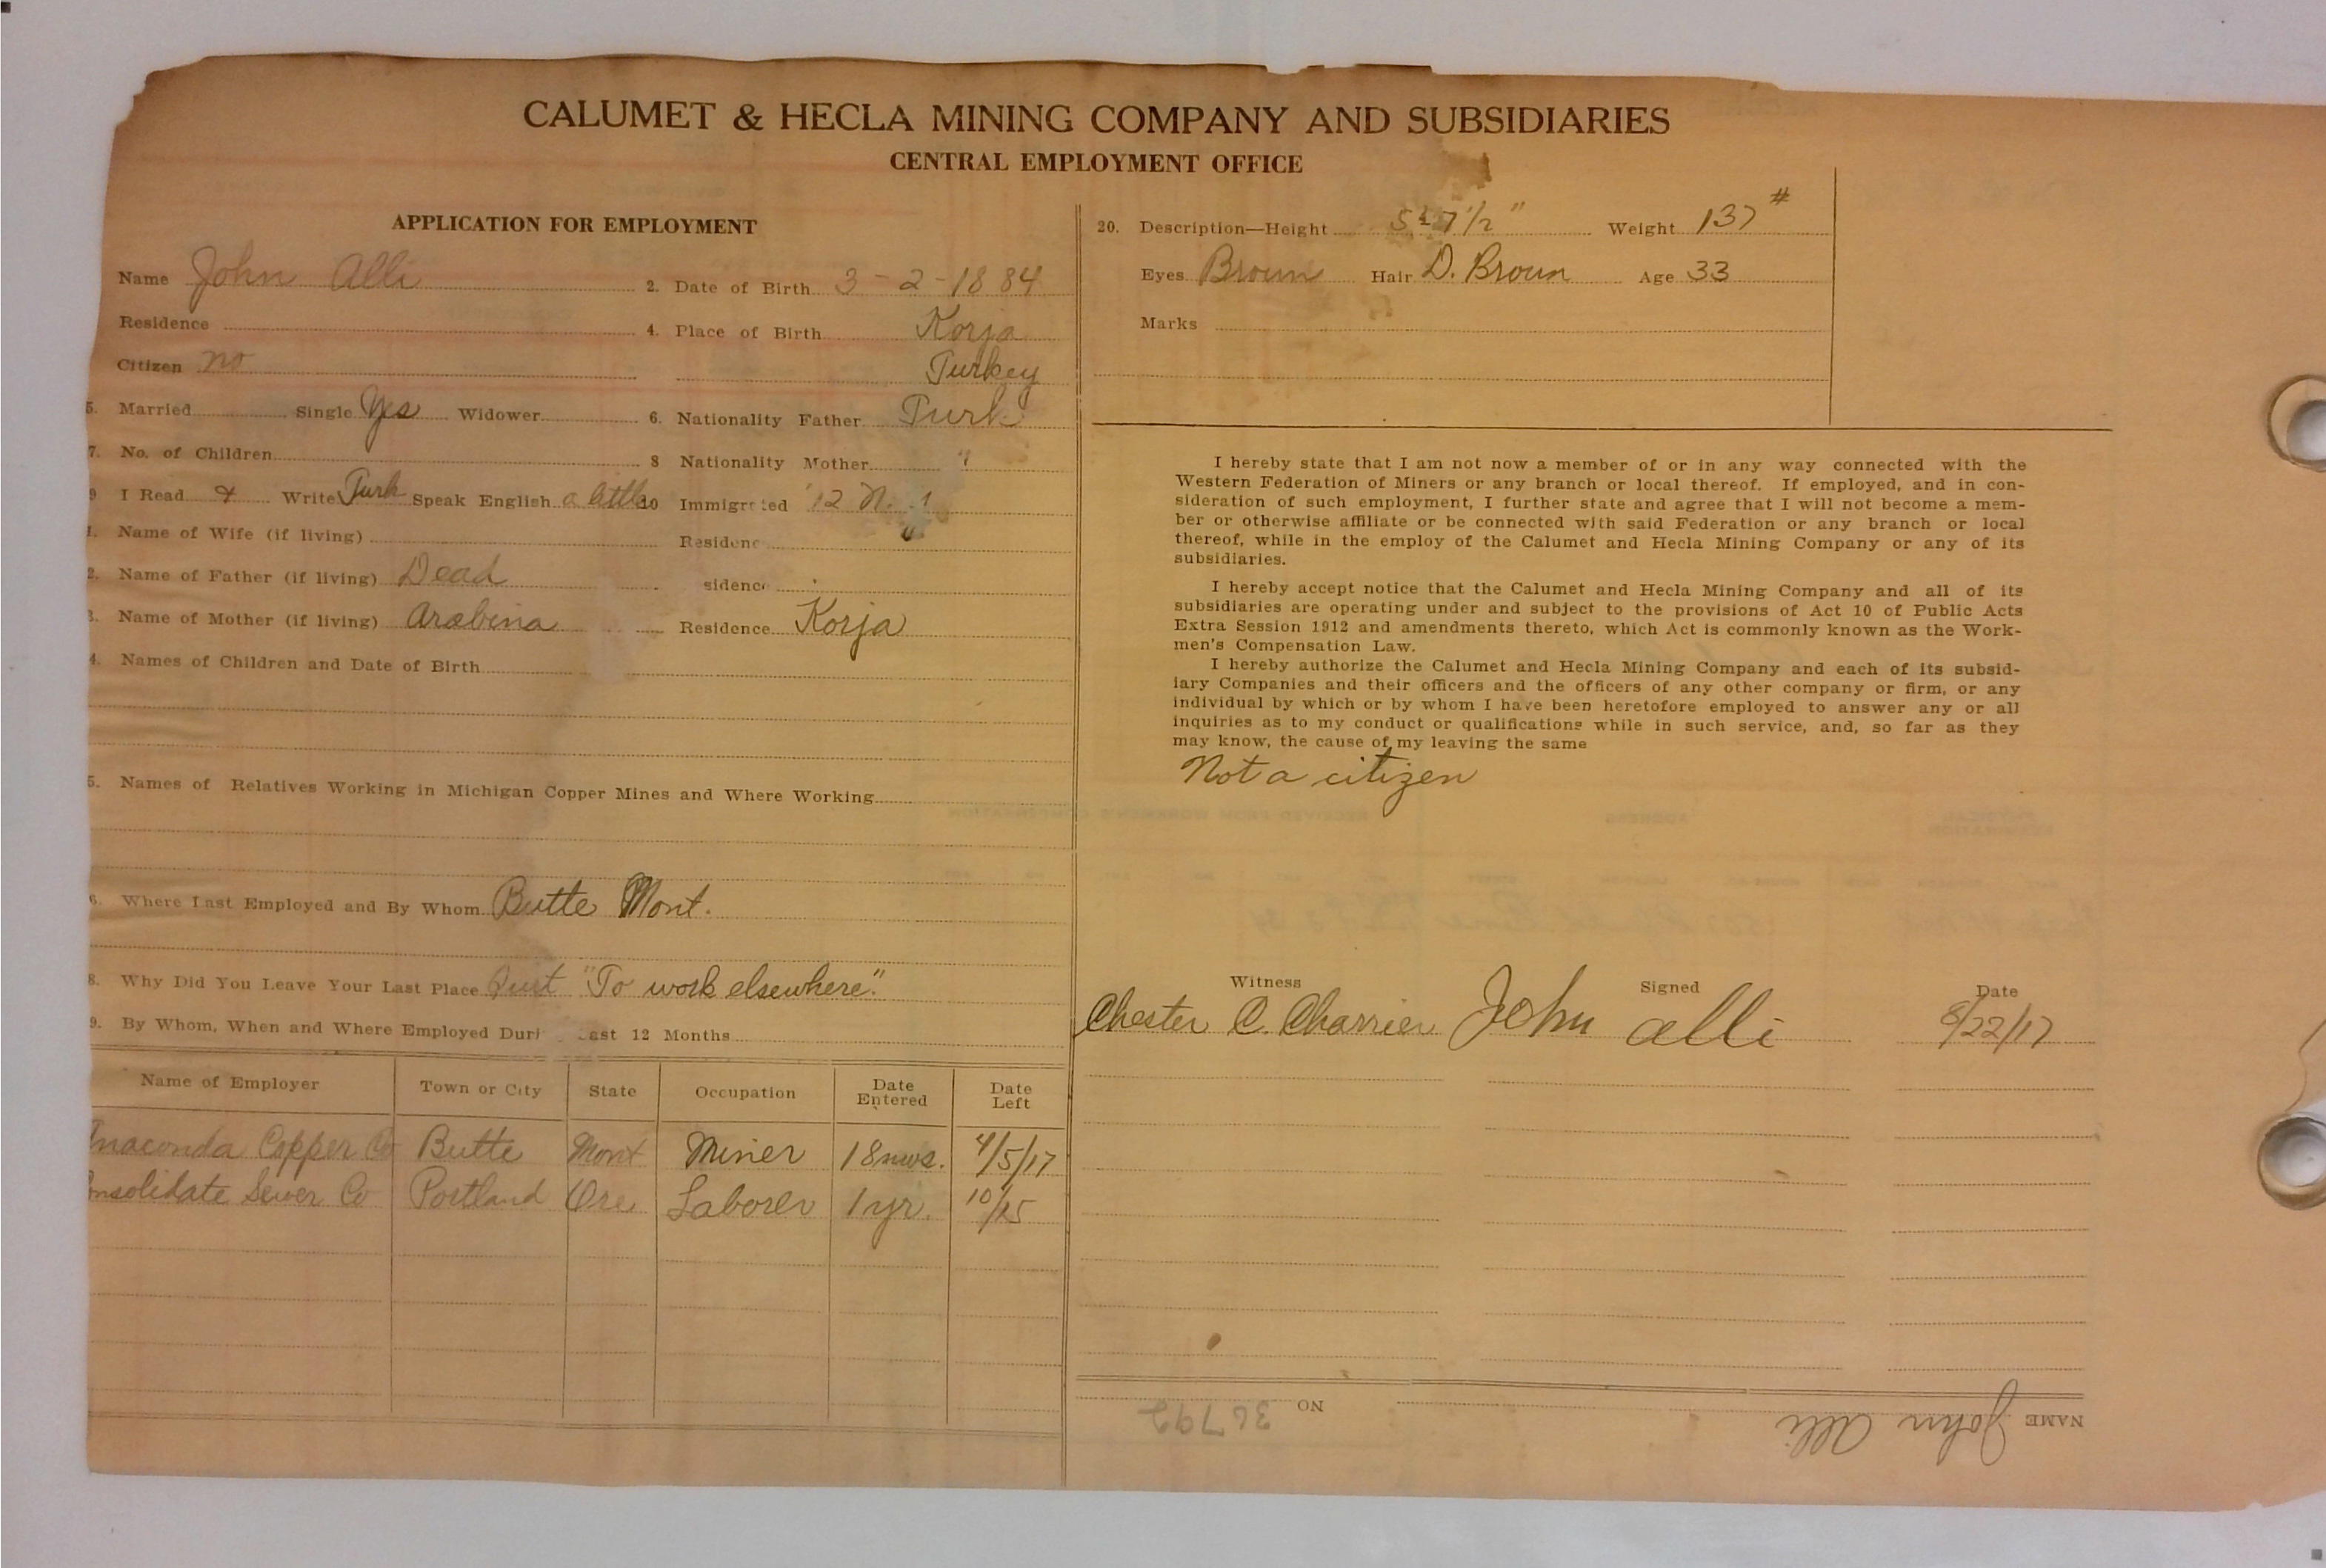 CALUMET & HECLA MINING COMPANY AND SUBSIDIARIES
CENTRAL EMPLOYMENT OFFICE
APPLICATION FOR EMPLOYMENT
Name John Alli 2. Date of Birth 3-2-1884
Residence 4. Place of Birth Korja
Citizen no Turkey
5. Married Single Yes Widower 6. Nationality Father Turk
7. No. of Children 8 Nationality Mother "
9 I Read & Write Turk Speak English a little 10 Immigrated '12 N.
1. Name of Wife (if living) Residenc
2. Name of Father (if living) Dead sidence
3. Name of Mother (if living) Arabina Residence Korja
4. Names of Children and Date of Birth
5. Names of Relatives Working in Michigan Copper Mines and Where Working
6. Where Last Employed and By Whom Butte Mont.
8. Why Did You Leave Your Last Place Quit "To work elsewhere."
9. By Whom, When and Where Employed Duri ast 12 Months
Name of Employer Town or City State Occupation Date Entered Date Left
Anaconda Copper Co Butte Mont Miner 18 mos. 4/5/17
onsolidate Sewer Co Portland Ore Laborer 1 yr. 10/15
20. Description—Height 5 ft 7 1/2" Weight 137#
Eyes Broun Hair D. Broun Age 33
Marks
I hereby state that I am not now a member of or in any way connected with the
Western Federation of Miners or any branch or local thereof. If employed, and in con-
sideration of such employment, I further state and agree that I will not become a mem-
ber or otherwise affiliate or be connected with said Federation or any branch or local
thereof, while in the employ of the Calumet and Hecla Mining Company or any of its
subsidiaries.
I hereby accept notice that the Calumet and Hecla Mining Company and all of its
subsidiaries are operating under and subject to the provisions of Act 10 of Public Acts
Extra Session 1912 and amendments thereto, which Act is commonly known as the Work-
men's Compensation Law.
I hereby authorize the Calumet and Hecla Mining Company and each of its subsid-
iary Companies and their officers and the officers of any other company or firm, or any
individual by which or by whom I have been heretofore employed to answer any or all
inquiries as to my conduct or qualifications while in such service, and, so far as they
may know, the cause of my leaving the same
Not a citizen
Witness Signed Date
Chester C. Charrier John Alli 8/22/17
NAME John Alli NO 36792